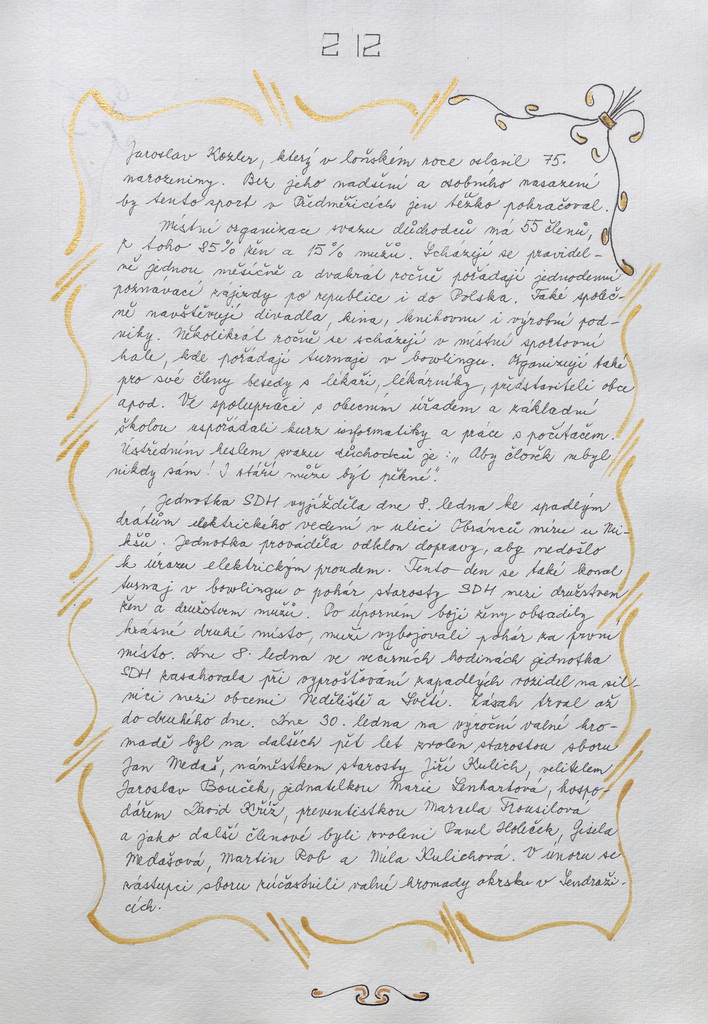 212
Jaroslav Kozler, který v loňském roce oslavil 75.
narozeniny. Bez jeho nadšení a osobního nasazení
by tento sport v Předměřicích jen těžko pokračoval.
Místní organizace svazu důchodců má 55 členů,
z toho 85% žen a 15% mužů. Scházejí se pravidel-
ně jednou měsíčně a dvakrát ročně pořádají jednodenní
poznávací zájezdy po republice i do Polska. Také společ-
ně navštěvují divadla, kina, knihovnu i výrobní pod-
niky. Několikrát ročně se scházejí v místní sportovní
hale, kde pořádají turnaje v bowlingu. Organizují také
pro své členy besedy s lékaři, lékárníky, představiteli obce
apod. Ve spolupráci s obecním úřadem a základní
školou uspořádali kurz informatiky a práce s počítačem.
Ústředním heslem svazu důchodců je: „Aby člověk nebyl
nikdy sám! I stáří může být pěkné".
Jednotka SDH vyjížděla dne 8. ledna ke spadlým
drátům elektrického vedení v ulici Obránců míru u Mi-
kšů. Jednotka prováděla odklon dopravy, aby nedošlo
k úrazu elektrickým proudem. Tento den se také konal
turnaj v bowlingu o pohár starosty SDH mezi družstvem
žen a družstvem mužů. Po úporném boji ženy obsadily
krásné druhé místo, muži vybojovali pohár za první
místo. Dne 8. ledna ve večerních hodinách jednotka
SDH zasahovala při vyprošťování zapadlých vozidel na sil-
nici mezi obcemi Neděliště a Světí. Zásah trval až
do druhého dne. Dne 30. ledna na výroční valné hro-
madě byl na dalších pět let zvolen starostou sboru
Jan Medaš, náměstkem starosty Jiří Kulich, velitelem
Jaroslav Bouček, jednatelkou Marie Lenhartová, hospo-
dářem David Kříž, preventistkou Marcela Nousilová
a jako další členové byli zvoleni Pavel Holeček, Gisela
Medašová, Martin Rob a Míla Kulichová. V únoru se
zástupci sboru zúčastnili valné hromady okrsku v Sendraži-
cích.